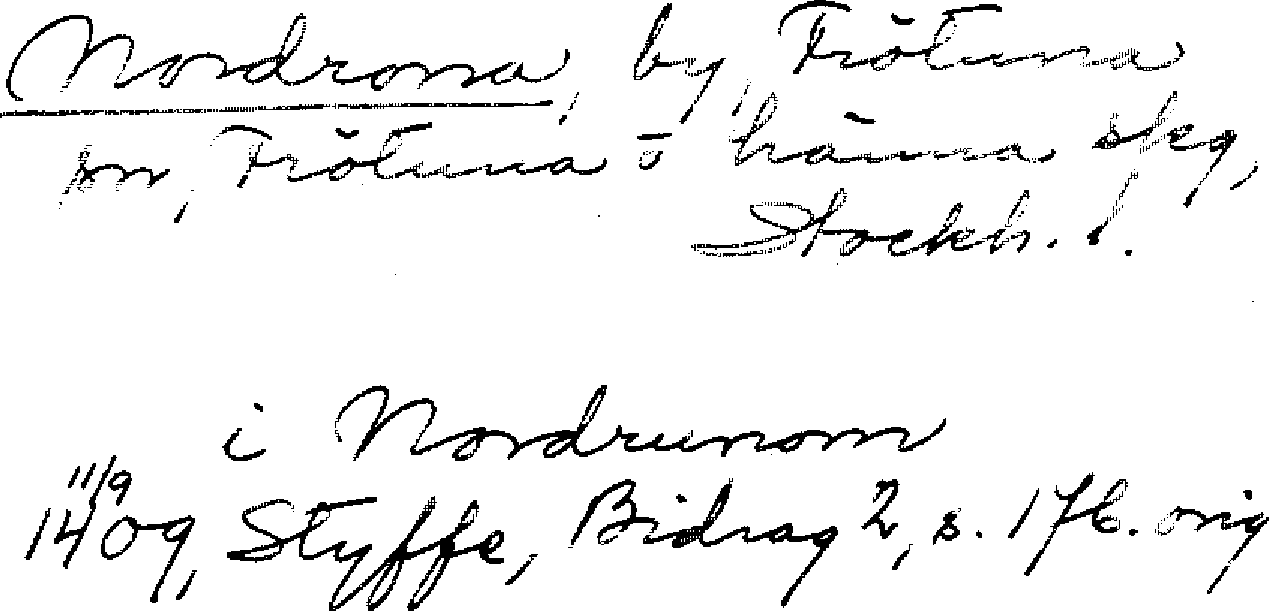 Nordrona, by, Frötuna
sn, Frötuna o länna skg,
Stockh. l.
i Nordrunom
11/9
1409, Styffe, Bidrag 2, s. 176. orig